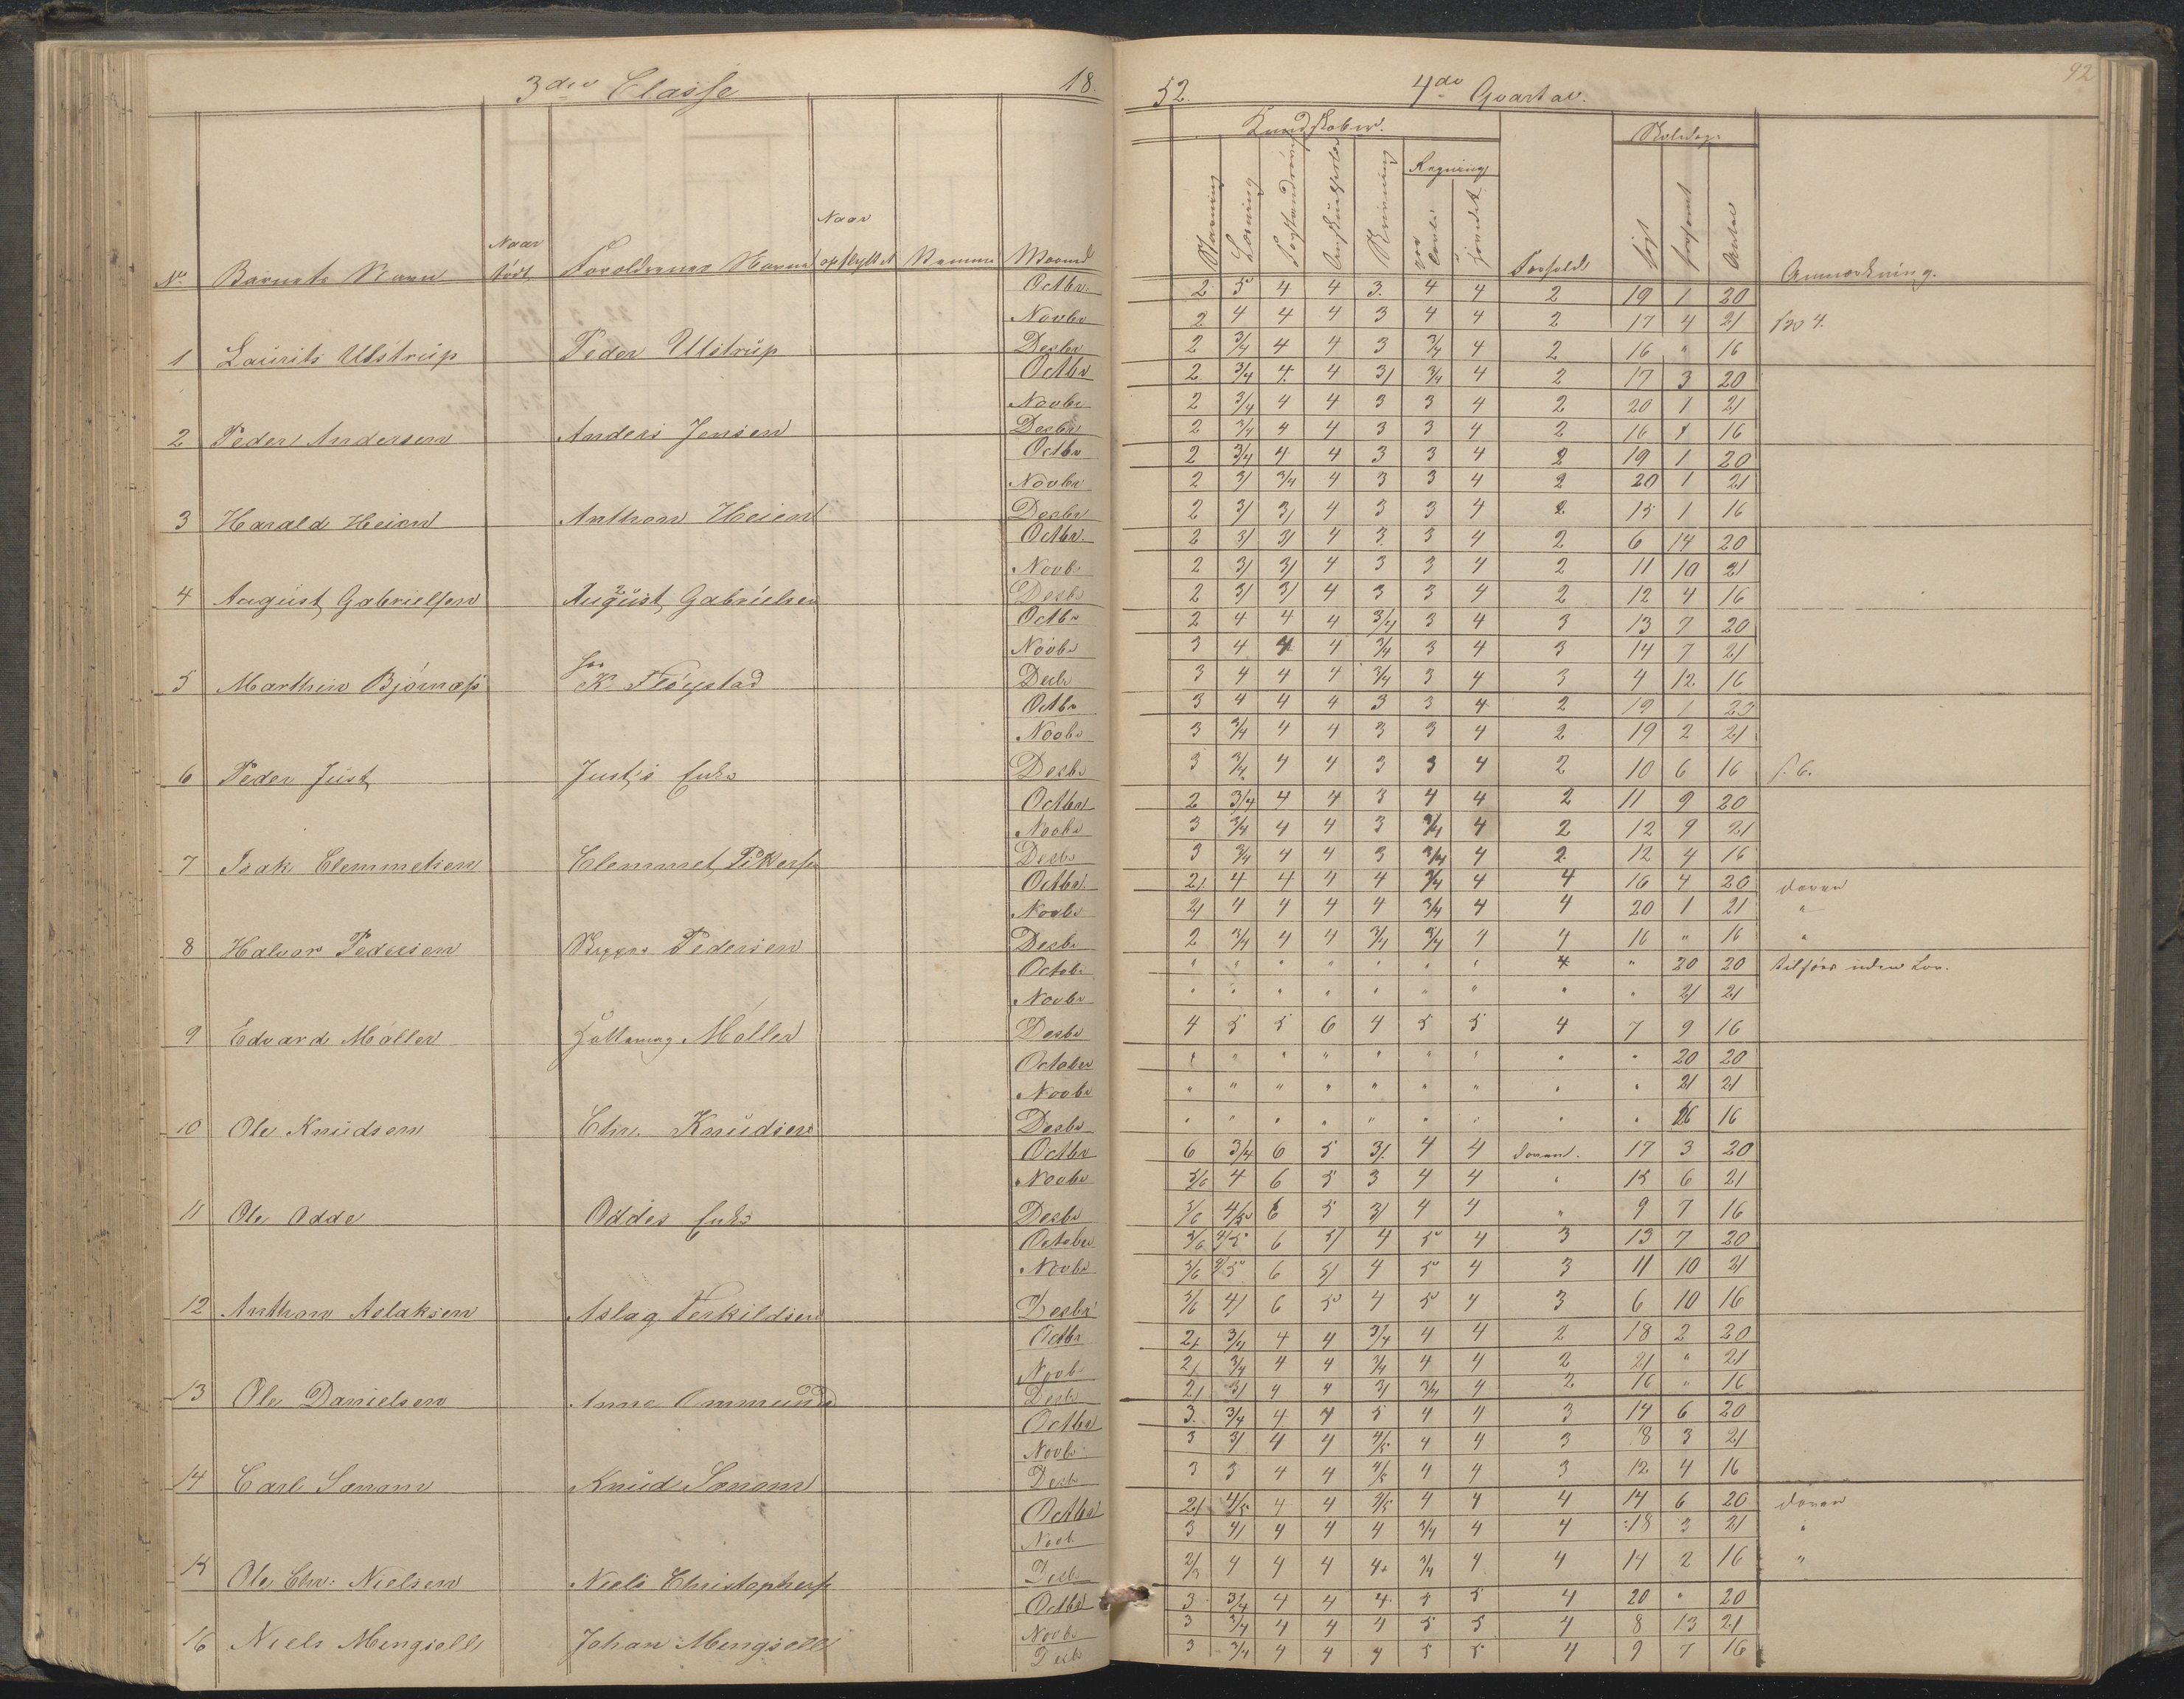 92
3die Classe 18.
52. 4de Qvartal.
Kundskaber. Skoledage
Regning
No Barnets Navn Naar født Forældrenes Navn Naar opflyttet Nummer Maaned Stavning Læsning Forstandsøv. Skrivning Forhold søgt forsømt Antal Anmærkning.
Octbr. 2 5 4 4 3. 4 4 2 19 1 20
Novbr 2 4 4 4 3 4 4 2 17 4 21
1 Laurits Ulstrup Peder Ulstrup Desbr 2 3/4 4 4 3 3/4 4 2 16 " 16
Octbr 2 3/4 4. 4 3/ 3/4 4 2 17 3 20
Novbr 2 3/4 4 4 3 3 4 2 20 1 21
2 Peder Andersen Anders Jensen Desbr 2 3/4 4 4 3 3 4 2 16 16
Octbr 2 3/4 4 4 3 3 4 2 19 1 20
Novbr 2 3/ 3/4 4 3 3 4 2 20 1 21
3 Harald Heien Anthon Heien Desbr 2 3/ 3/ 4 3 3 4 2 15 1 16
Octbr. 2 3/ 3/ 4 3 3 4 2 6 14 20
Novb. 2 3/ 3/ 4 3 3 4 2 11 10 21
4 August Gabrielsen August Gabrielsen Desb. 2 3/ 3/ 4 3 3 4 2 12 4 16
Octbr 2 4 4 4 3/4 3 4 3 13 7 20
Novbr 3 4 4 4 3/4 3 4 3 14 7 21
5 Marthin Bjørnæs K. Fløystad Desbr 3 4 4 4 3/4 3 4 3 4 12. 16
Octbr 3 4 4 4 3 3 4 2 19 1 20
Novbr 3 3/4 4 4 3 3 4 2 19 2 21
6 Peder Just Just's Enke Desbr 3 3/4 4 4 3 3 4 2 10 6 16
Octbr 2 3/4 4 4 3 4 4 2 11 9 20
Novbr 3 3/4 4 4 3 3/4 4 2 12 9 21
7 Isak Clemmetsen Clemmet Desbr 3 3/4 4 4 3 3/4 4 2. 12 4 16
Octbr. 2/. 4 4 4 4 3/4 4 4 16 4 20 doven
Novbr 2/ 4 4 4 4 3/4 4 4 20 1 21 "
8 Halvor Pedersen Pedersen Desbr 2 3/4 4 4 3/4 3/4 4 4 16 " 16 "
Octob. " " " " " " " 4 " 20 20
Novbr " " " " " " " " " 21 21
9 Edvard Møller Møller Desbr 4 5 5 6 4 5 5 4 7 9 16
October " " " " " " " " " 20 20
Novbr " " " " " " " " " 21 21
10 Ole Knudsen Chr. Knudsen Desbr " " " " " " " " " 16 16
Octbr 6 3/4 6 5 3/. 4 4 doven. 17 3 20
Novbr 5/6 4 6 5 3 4 4 " 15 6 21
11 Ole Odde Oddes Enke Desbr 5/6 4/5 6 5 3/ 4 4 " 9 7 16
October 5/6 4/5 6 5/ 4 5 4 3 13 7 20
Novbr 5/6 4/5 6 5/ 4 5 4 3 11 10 21
12 Anthon Aslaksen Aslag Terkildsen Desbr 5/6 4/ 6 5 4 5 4 3 6 10 16
Octbr 2/. 3/4 4 4 3/4 4 4 2 18 2 20
Novb. 2/. 3/4 4 4 3/4 4 4 2 21 " 21
13 Ole Danielsen Anne Desbr 2/ 3/ 4 4 3/ 3/4 4 2 16 " 16
Octbr 3. 3/4 4 4 5 4 4 3 14 6 20
Novb. 3 3/ 4 4 4/5 4 4 3 18 3 21
14 Carl Knud Desb. 3 3 4 4 4/5 4 4 3 12 4 16
Octbr 2/. 4/5 4 4 4/5 4 4 4 14 6 20 doven
Novb. 3 4/ 4 4 4 3/4 4 4 18 3 21 "
15 Ole Chr. Nielsen Niels Christophers Desbr 2/3 4 4 4 4+ 3/4 4 4 14 2 16 "
Octbr 3 3/4 4 4 4. 5 5 4 20 " 20
Novbr 3 3/4 4 4 4 5 5 4 8 13 21
16 Niels Mengsoll Johan Mengsoll Desbr 3 3/4 4 4 4 5 5 4 9 7 16